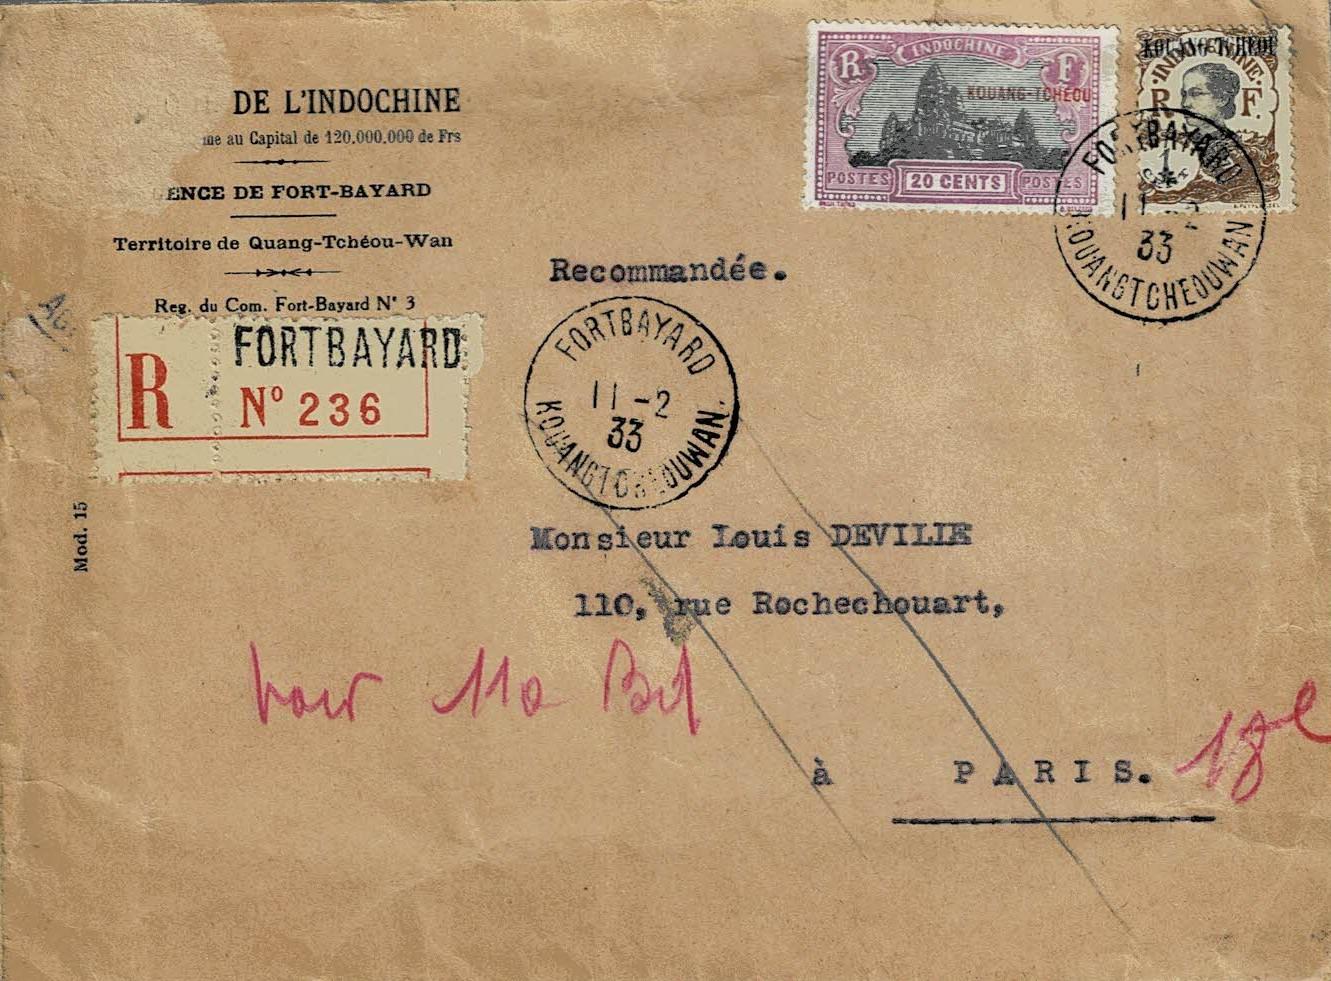 DE L'INDOCHINE
me au Capital de 120.000.000 de Frs
ENCE DE FORT-BAYARD
Territoire de Quang-Tchéou-Wan
Reg. du Com. Fort-Bayard N° 3
R
FORTBAYARD
N° 236
Mod. 15
R INDOCHINE F
KOUANG-TCHEOU
POSTES 20 CENTS POSTES
KOUANG-TCHEOU
INDOCHINE
R F.
1
FORTBAYARD
11-2
33
KOUANGTCHEOUWAN
Recommandée.
FORTBAYARD
11-2
33
KOUANGTCHEOUWAN.
Monsieur Louis DEVILLE
110, rue Rochechouart,
à PARIS.
voir 110 Bd
18e